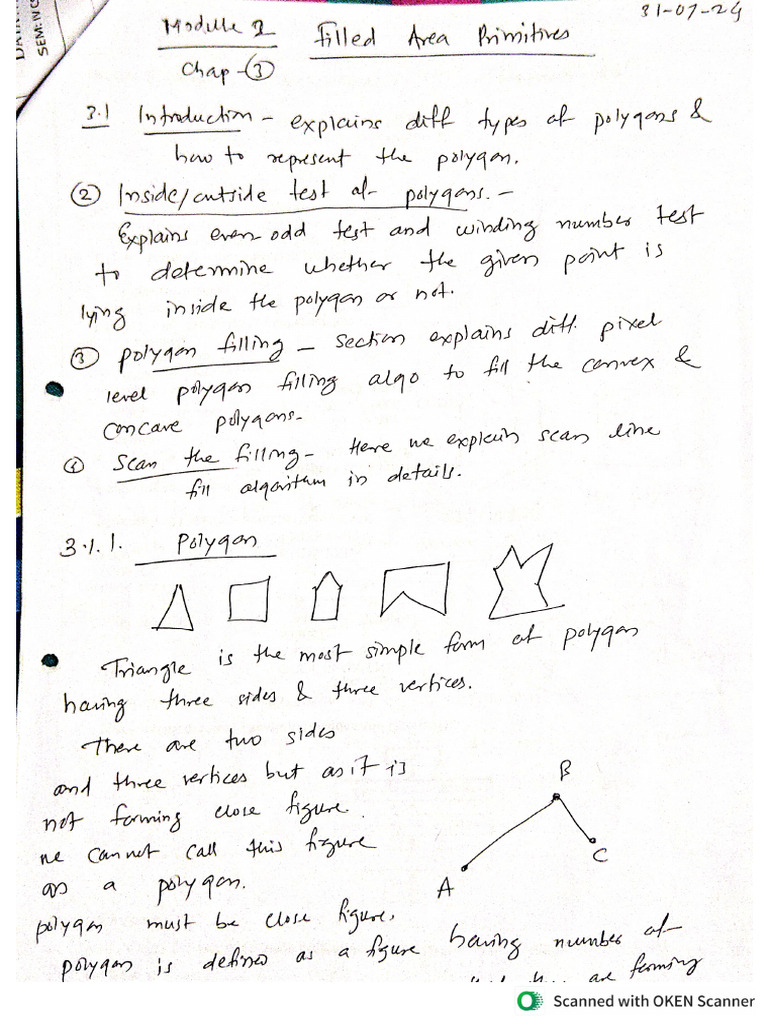 31-07-24
SEM: IV CS
Module 2 Filled Area Primitives
Chap-(3)
3.1 Introduction - explains diff types of polygons &
how to represent the polygon.
(2) Inside/outside test of polygons. -
Explains even-odd test and winding number test
to determine whether the given point is
lying inside the polygon or not.
(3) polygon filling - section explains diff. pixel
level polygon filling algo to fill the convex &
concave polygons.
(4) Scan the filling - Here we explain scan line
fill algorithm in details.
3.1.1. Polygon
Triangle is the most simple form of polygon
having three sides & three vertices.
There are two sides
and three vertices but as it is
not forming close figure
we cannot call this figure
as a polygon.
B
A
C
polygon must be close figure.
polygon is defined as a figure having number of
are forming
Scanned with OKEN Scanner